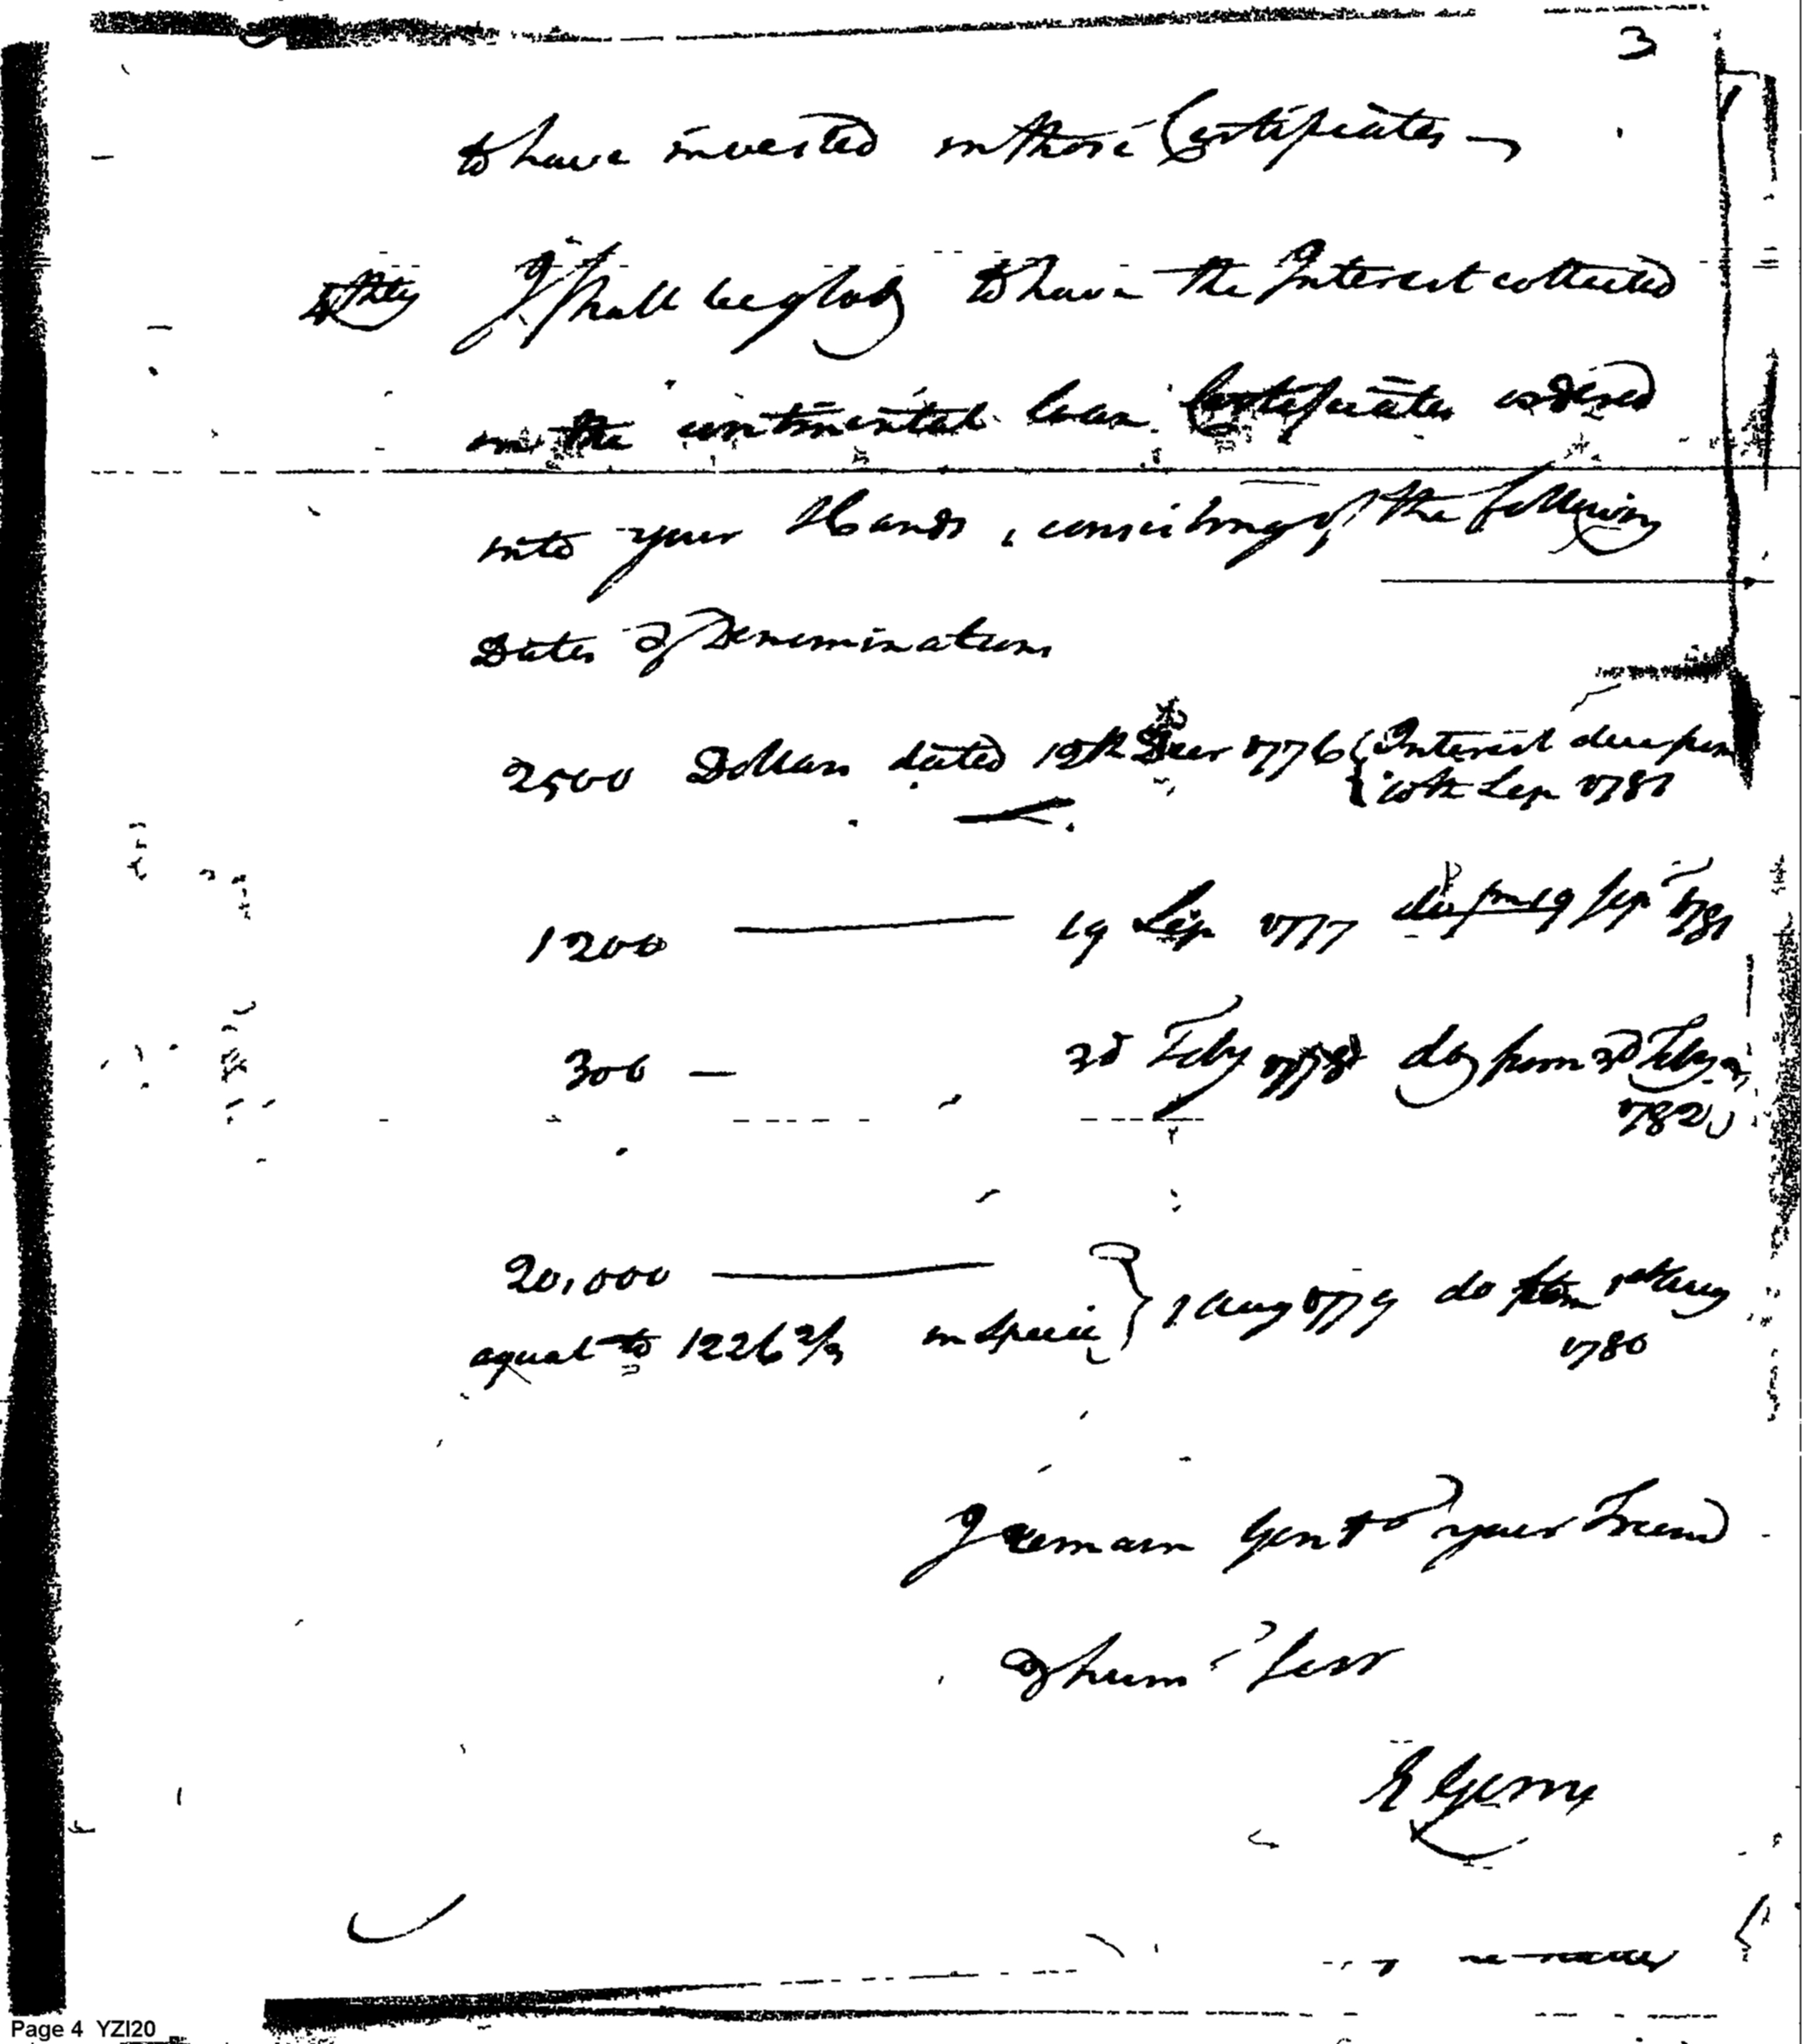 3
to have invested in those Certificates —
4thly I shall be glad to have the Interest collected
on the continental loan Certificates ordered
into your Hands, consisting of the following
Dates & Denominations
2500 Dollars dated 12th Decr 1776 { Interest due from
10th Sep 1781
1200 — 19 Sep 1777 do from 19 Sep 1781
300 — 3d Feby 1778 do from 3d Feby
1782
20,000 — } 1 Aug 1779 do from 1st Aug
equal to 1226 2/3 in Specie 1780
I remain Gent your Friend
& hum Serv
E Gerry
Page 4 YZI20